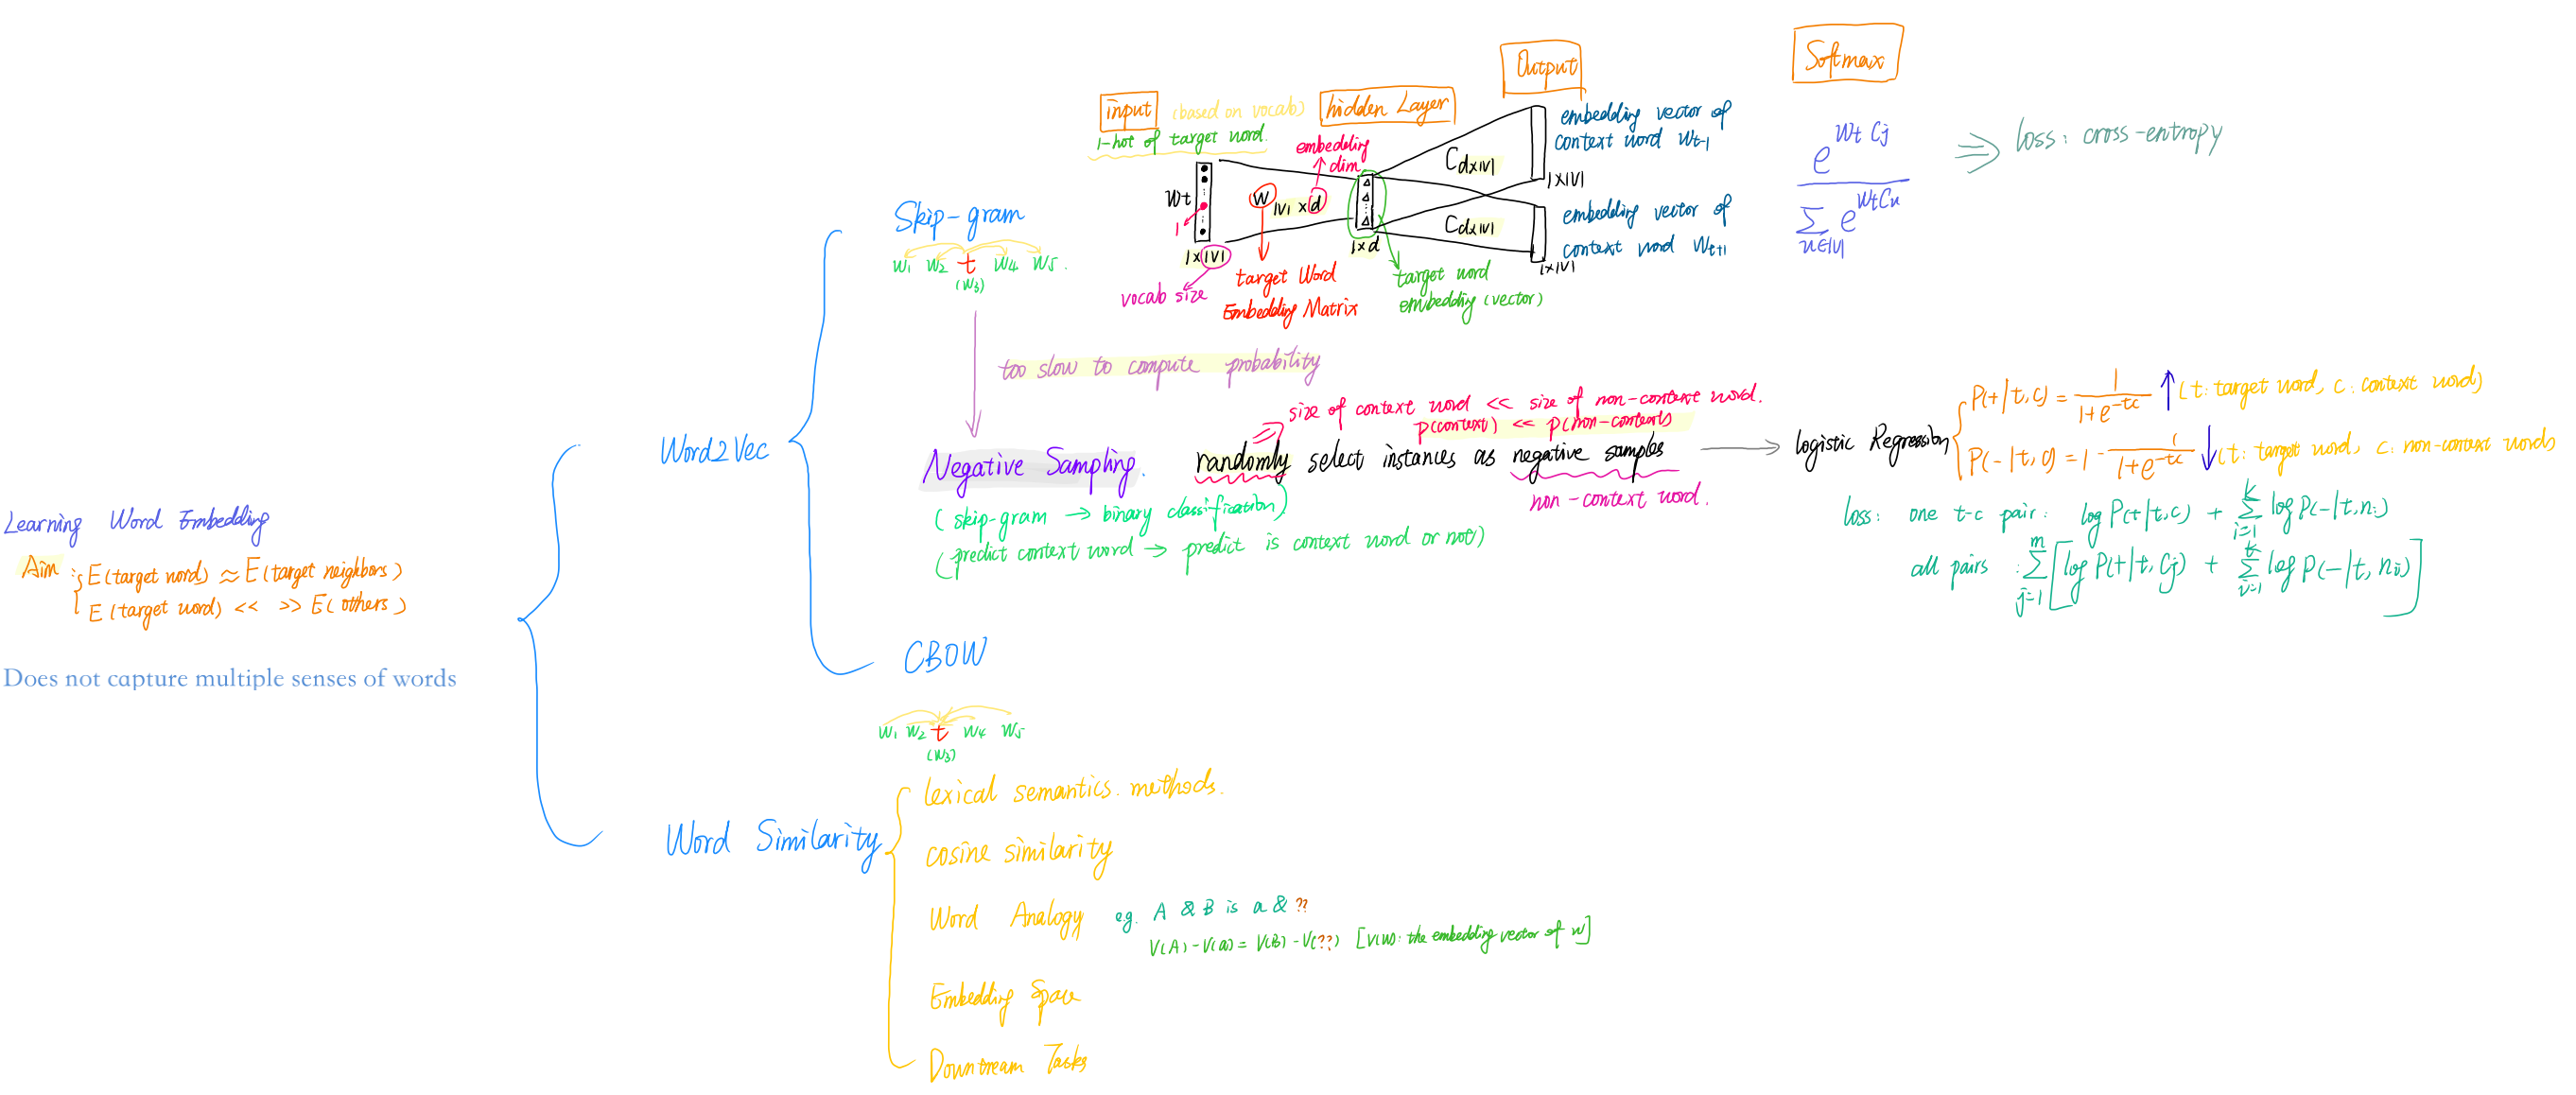 Learning Word Embedding
Aim : E(target word) ≈ E(target neighbors)
E(target word) << >> E(others)
Does not capture multiple senses of words
Word2Vec
Skip-gram
w1 w2 t w4 w5.
(w3)
input (based on vocab)
1-hot of target word.
hidden Layer
Output
Softmax
embedding dim
Wt
1
1×|V|
vocab size
W |V|×d
target Word Embedding Matrix
1×d
target word embedding (vector)
C d×|V|
C d×|V|
embedding vector of context word Wt-1
1×|V|
embedding vector of context word Wt+1
1×|V|
e^{Wt Cj}
Σ_{u∈|V|} e^{Wt Cu}
⇒ loss: cross-entropy
too slow to compute probability
Negative Sampling.
(skip-gram → binary classification)
(predict context word → predict is context word or not)
size of context word << size of non-context word.
p(context) << p(non-contexts)
randomly select instances as negative samples
non-context word.
logistic Regression
P(+|t,c) = 1/(1+e^{-tc}) ↑ (t: target word, c: context word)
P(-|t,c) = 1 - 1/(1+e^{-tc}) ↓ (t: target word, c: non-context words
loss: one t-c pair: log P(+|t,c) + Σ_{i=1}^{k} log P(-|t,ni)
all pairs : Σ_{j=1}^{m} [log P(+|t,Cj) + Σ_{i=1}^{k} log P(-|t,ni)]
CBOW
w1 w2 t w4 w5
(w3)
Word Similarity
lexical semantics. methods.
cosine similarity
Word Analogy e.g. A & B is a & ??
V(A)-V(a) = V(B)-V(??) [V(w): the embedding vector of w]
Embedding Space
Downtream Tasks